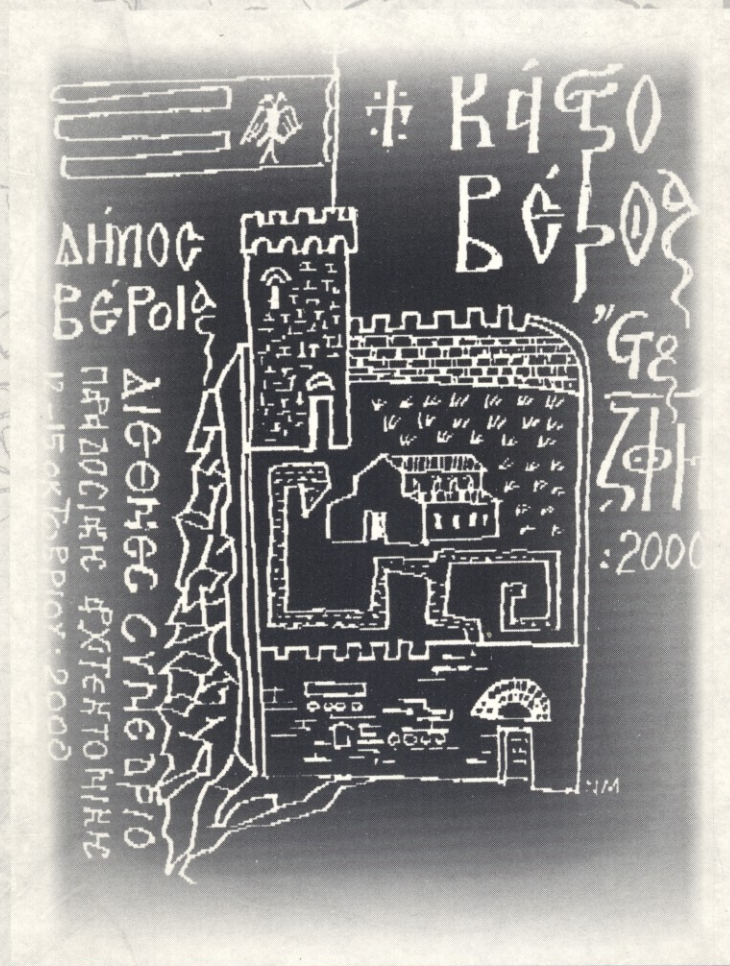 ΚΆϚΟ
ΒΈΡΟΙΑ
ΔΉΜΟΣ
ΒΈΡΟΙΑΣ
ΔΙΕΘΝΕΣ ΣΥΝΕΔΡΙΟ
ΠΑΡΑΔΟΣΙΚΗΣ ΑΡΧΙΤΕΚΤΟΝΙΚΗΣ
12-15 ΟΚΤΩΒΡΙΟΥ · 2000
:2000
NM